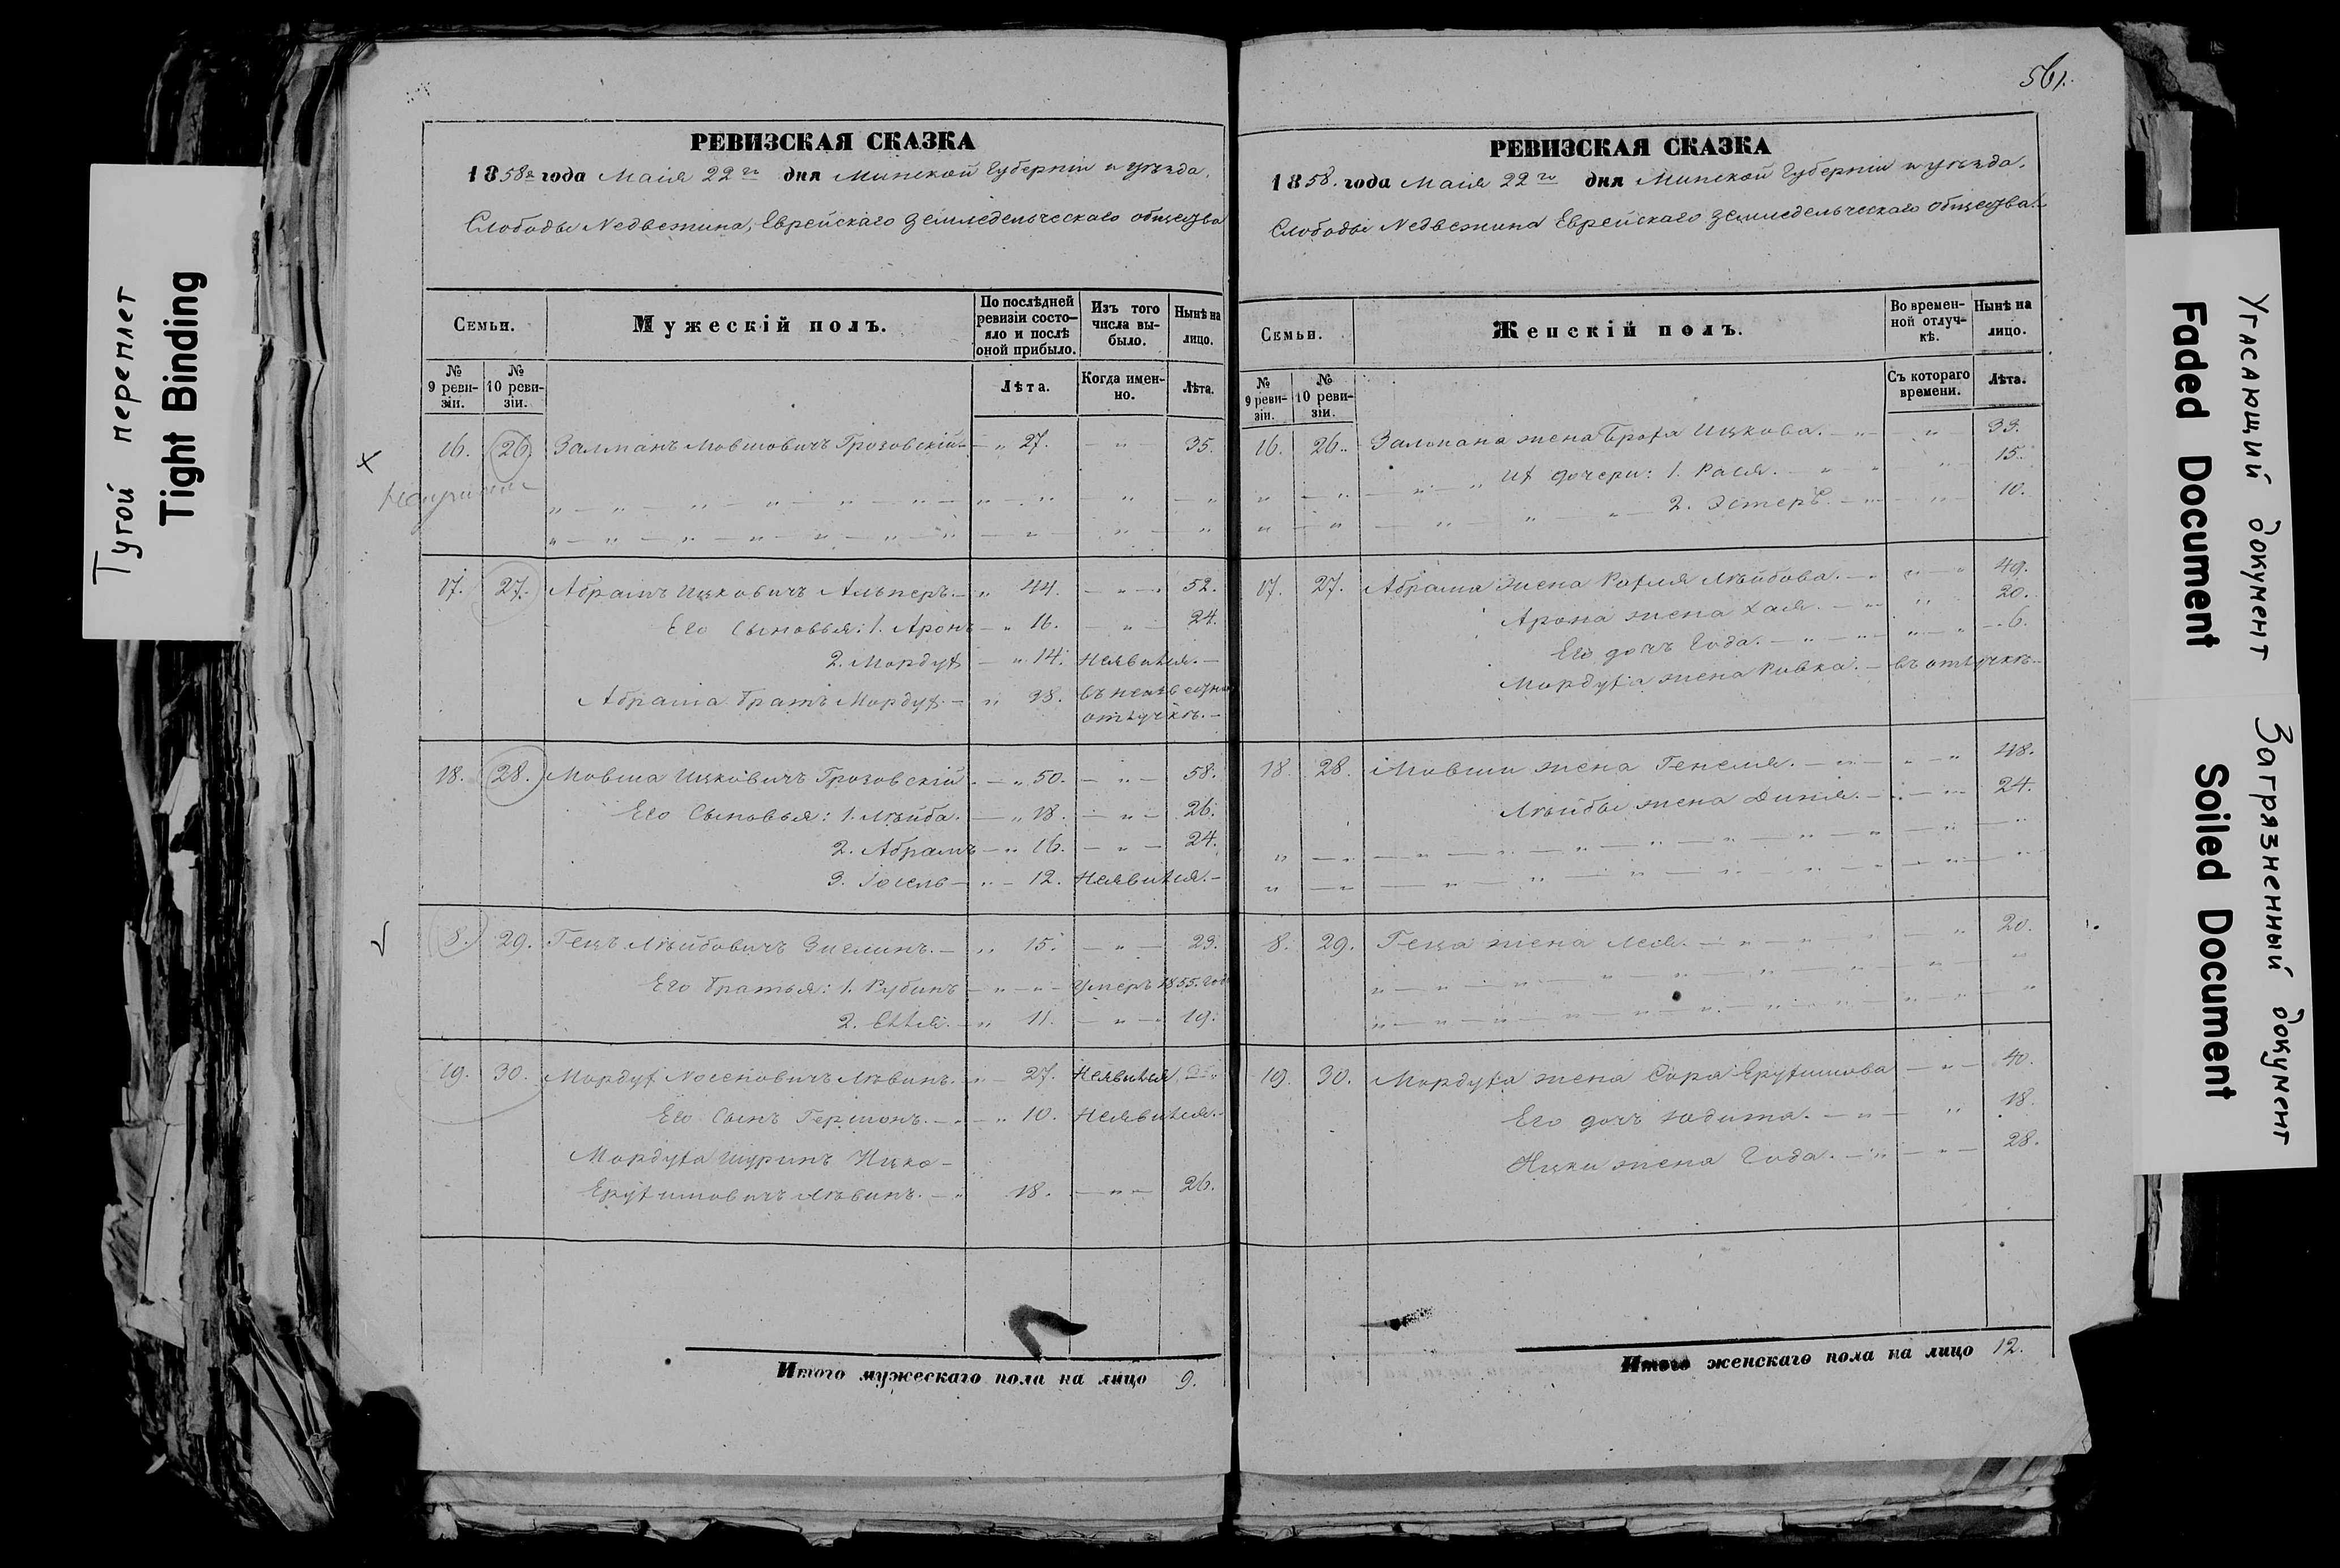 561.
Тугой переплет
Tight Binding
РЕВИЗСКАЯ СКАЗКА
1858 года Маія 22го дня Минской Губерніи и уѣзда.
Слободы Недвежина, Еврейскаго Земледельческаго общества
Семьи.
Мужескій полъ.
По послѣдней ревизіи состояло и послѣ оной прибыло.
Изъ того числа выбыло.
Нынѣ на лицо.
№ 9 ревизіи.
№ 10 ревизіи.
Лѣта.
Когда именно.
Лѣта.
16. 26. Залманъ Мовшовичъ Грозовскій 27. 35.
17. 27. Абрамъ Ицковичъ Альперъ. 44. 52.
Его Сыновья: 1. Аронъ 16. 24.
2. Мордух 14. Неявился.
Абрама братъ Мордух 38. въ отлучкѣ.
18. 28. Мовша Ицковичъ Грозовскій. 50. 58.
Его Сыновья: 1. Лейба. 18. 26.
2. Абрамъ 16. 24.
3. Іосель 12. Неявился.
8. 29. Гецъ Лейбовичъ 15. 23.
Его братья: 1. Рубинъ умеръ 1855. года
2. 11. 19.
19. 30. Мордух Носеновичъ Левинъ. 27. Неявился
Его Сынъ Гершонъ. 10. Неявился.
Мордуха шуринъ Ицко
Ерухимовичъ Левинъ. 18. 26.
Итого мужескаго пола на лицо 9.
РЕВИЗСКАЯ СКАЗКА
1858. года Маія 22го дня Минской Губерніи и уѣзда.
Слободы Недвежина Еврейскаго Земледельческаго общества.
Семьи.
Женскій полъ.
Во временной отлучкѣ.
Нынѣ на лицо.
№ 9 ревизіи.
№ 10 ревизіи.
Съ котораго времени.
Лѣта.
16. 26. Залмана жена Броха Ицкова. 33.
Их дочери: 1. Рася. 15.
2. Эстеръ. 10.
17. 27. Абрама жена Рохля Лейбова. 49.
Арона жена Хая. 20.
Его дочъ Года. 6.
Мордуха жена Ривка. въ отлучкѣ
18. 28. Мовши жена Генеся. 48.
Лейбы жена Диня. 24.
8. 29. Геца жена Лея. 20.
19. 30. Мордуха жена Сора Ерухимова 40.
Его дочъ Юдита. 18.
Ицки жена Года. 28.
Итого женскаго пола на лицо 12.
Угасающий документ
Faded Document
Загрязненный документ
Soiled Document